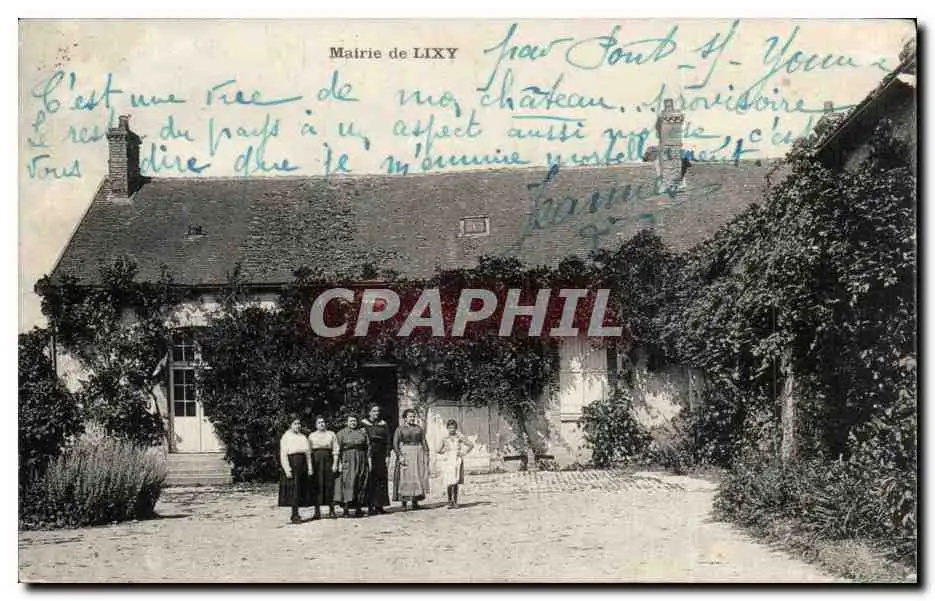 Mairie de LIXY
par Pont-s/-Yonne
C'est une vue de mon château. provisoire
Le reste du pays à un aspect aussi morose, c'est
vous dire que je m'ennuie mortellement
CPARHIL